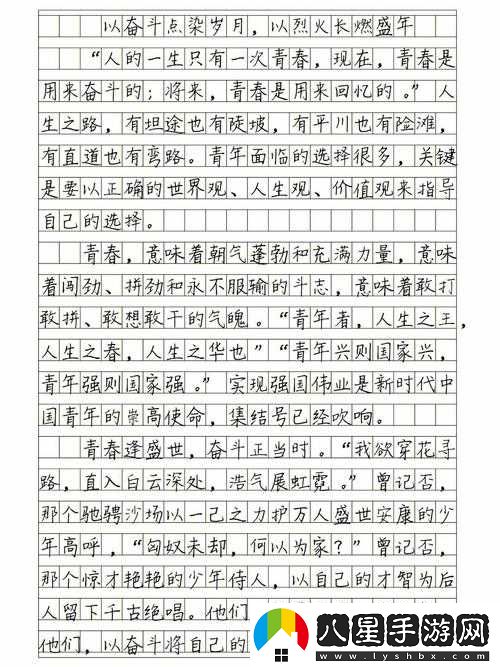 以奋斗点染岁月，以烈火长燃盛年
“人的一生只有一次青春，现在，青春是
用来奋斗的；将来，青春是用来回忆的。”人
生之路，有坦途也有陡坡，有平川也有险滩，
有直道也有弯路。青年面临的选择很多，关键
是要以正确的世界观、人生观、价值观来指导
自己的选择。
青春，意味着朝气蓬勃和充满力量，意味
着闯劲、拼劲和永不服输的斗志，意味着敢打
敢拼、敢想敢干的气魄。“青年者，人生之王，
人生之春，人生之华也”“青年兴则国家兴，
青年强则国家强。”实现强国伟业是新时代中
国青年的崇高使命，集结号已经吹响。
青春逢盛世，奋斗正当时。“我欲穿花寻
路，直入白云深处，浩气展虹霓。”曾记否，
那个驰骋沙场以一己之力护万人盛世安康的少
年高呼，“匈奴未却，何以为家？”曾记否，
那个惊才艳艳的少年侍人，以自己的才智为后
人留下千古绝唱。他们
他们，以奋斗将自己的
八星手游网
www.lyshbx.com